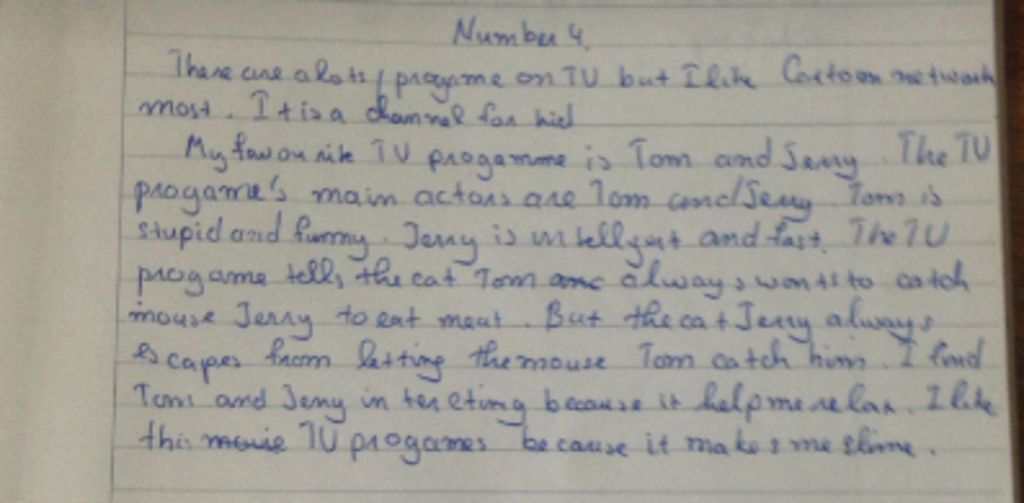 Number 4.
There are a lots / progame on TV but I like Cartoon network
most. It is a channel for kid
My favourite TV progamme is Tom and Jerry. The TV
progame's main actors are Tom and Jerry. Tom is
stupid and funny. Jerry is intellgent and fast. The TV
progame tells the cat Tom always wants to catch
mouse Jerry to eat meat. But the cat Jerry always
escapes from letting the mouse Tom catch him. I find
Tom and Jerry intereting because it help me relax. I like
this TV progames because it makes me slime.